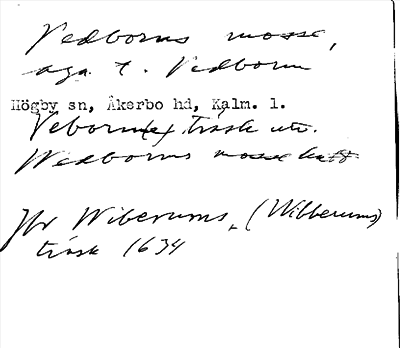 Vedborns mosse,
äga. t. Vedborm
Högby sn, Åkerbo hd, Kalm. l.
Veborm(e) träsk utv.
Wedborns mosse
Jfr Wiberums, (Wibberums)
träsk 1634